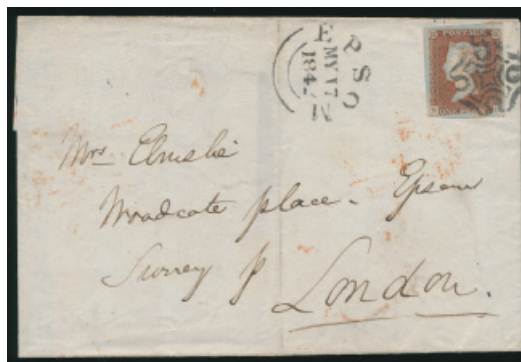 EPSOM
MY 17
1842
POSTAGE
Mrs Elmslie
Woodcote place - Epsom
Surrey
London.